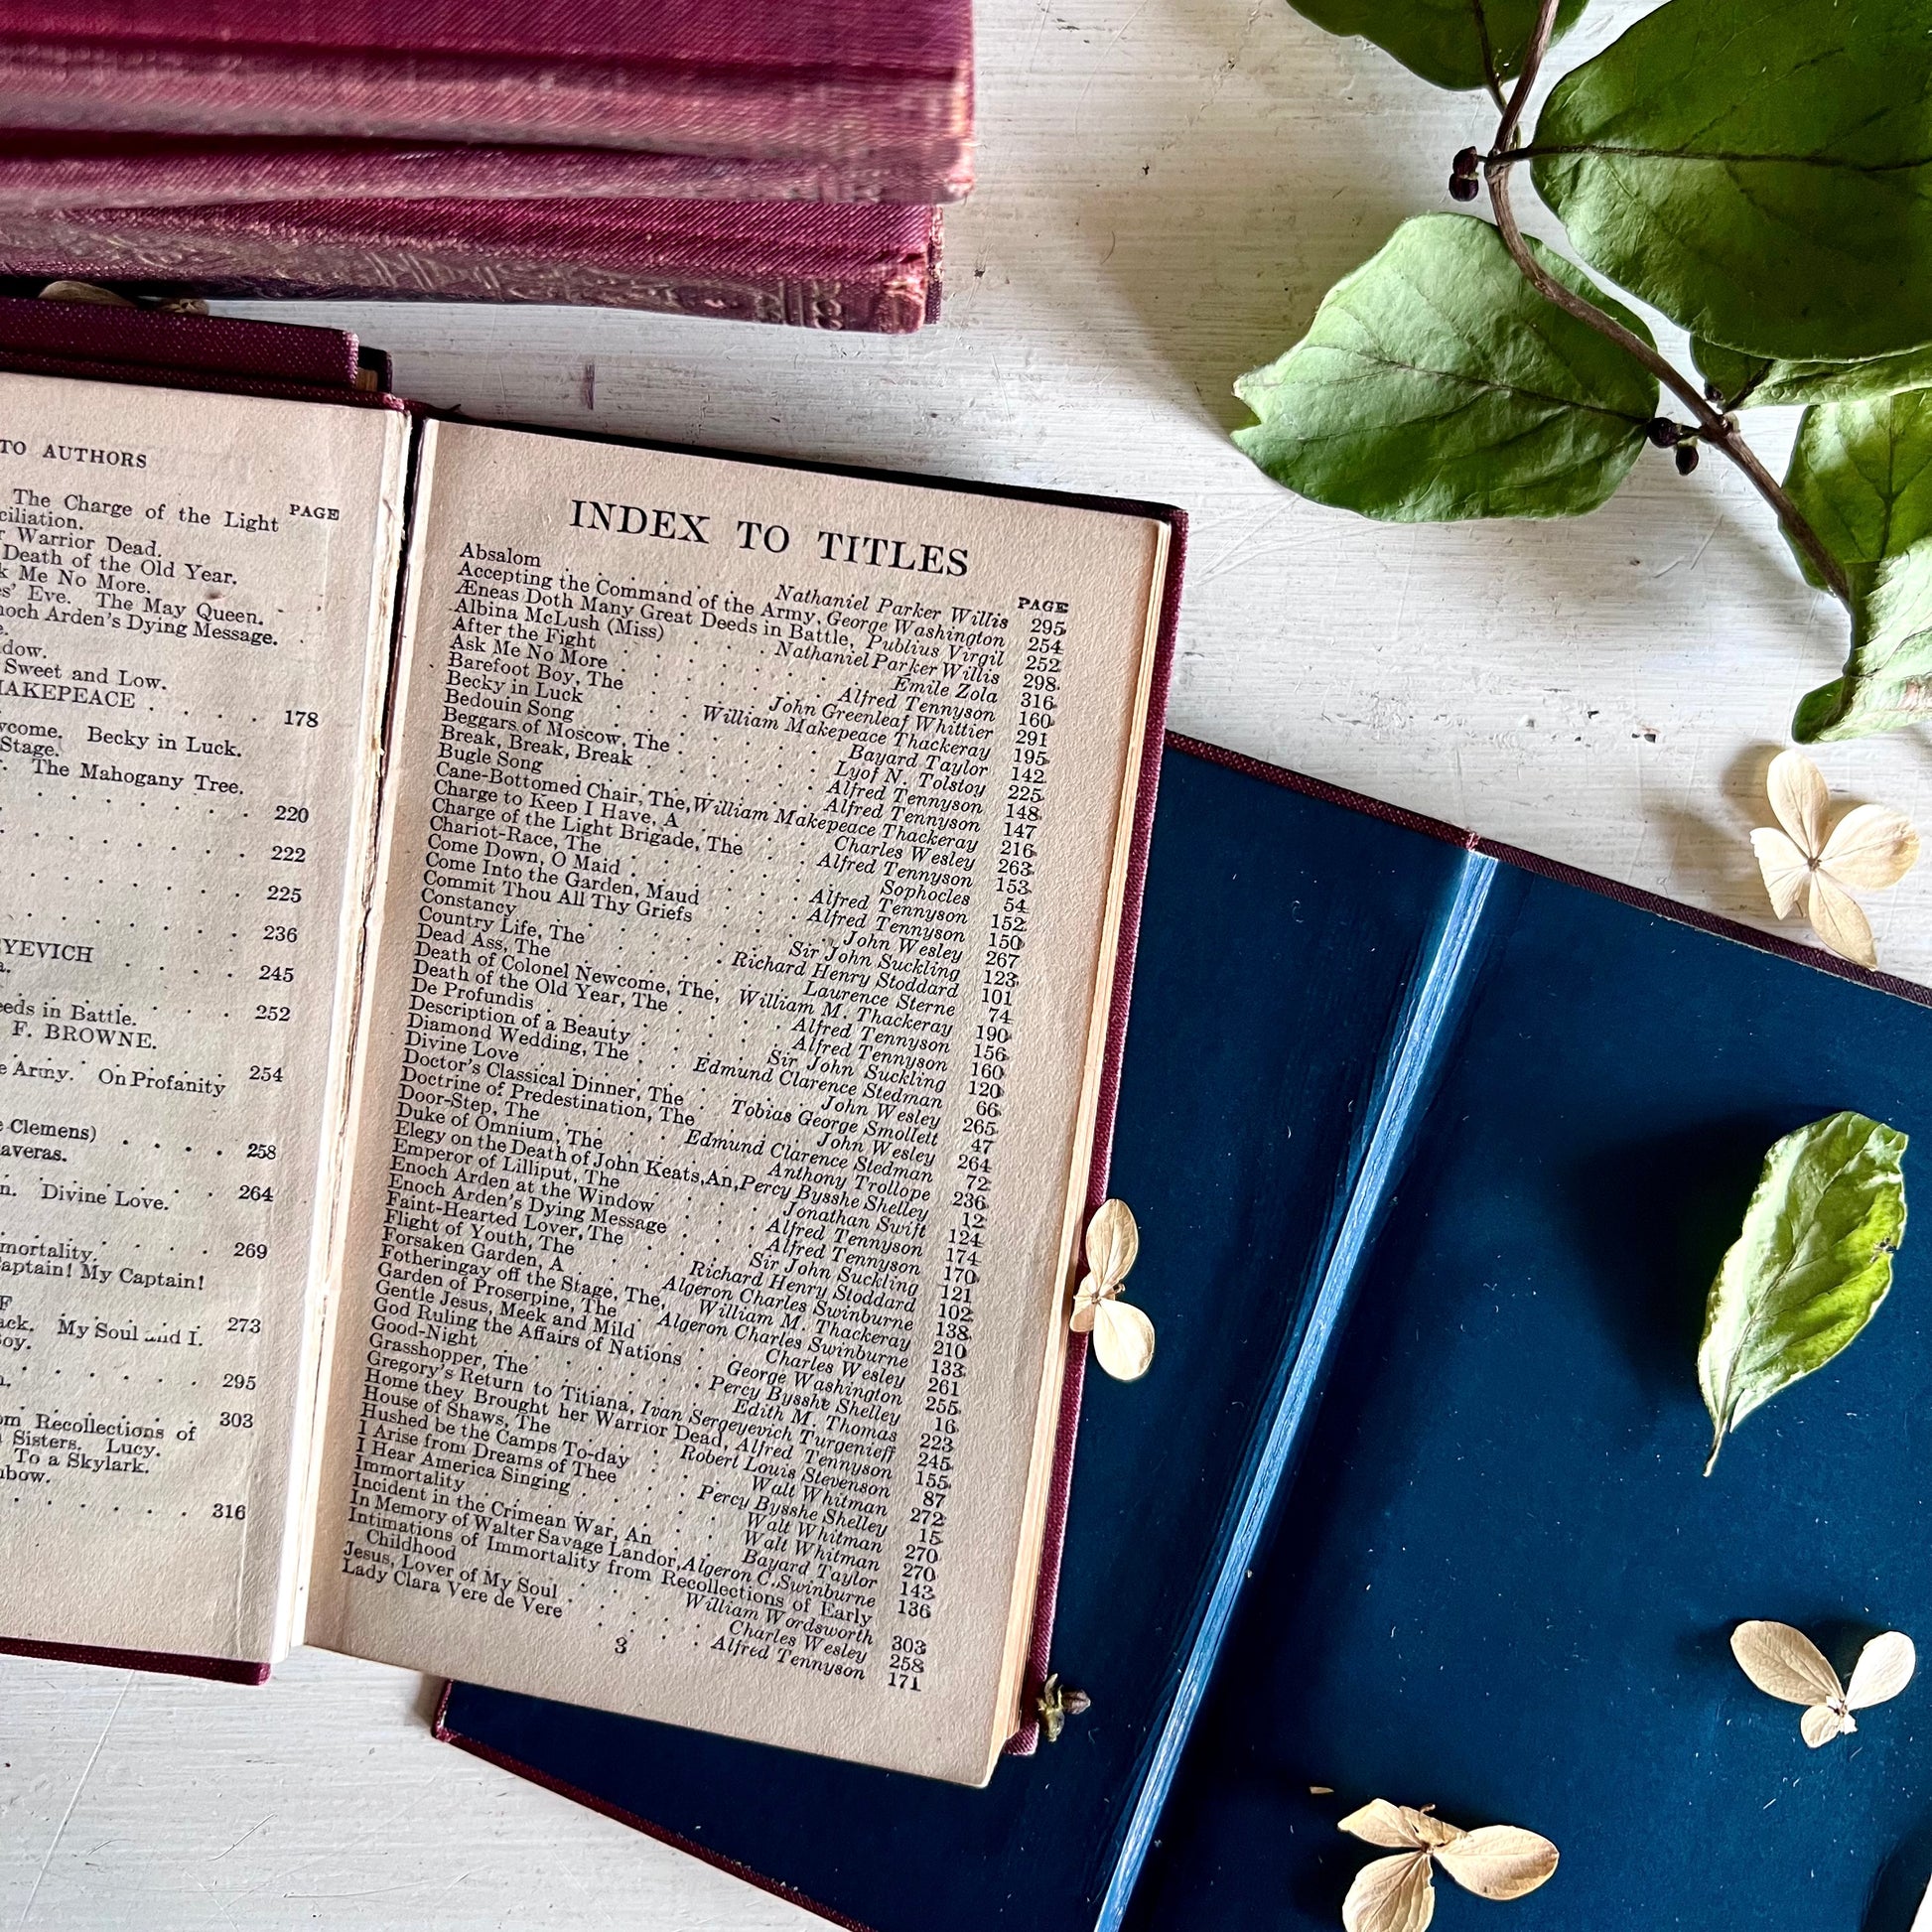 TO AUTHORS
PAGE
The Charge of the Light
Warrior Dead.
Death of the Old Year.
Me No More.
Eve. The May Queen.
Arden's Dying Message.
Sweet and Low.
178
Becky in Luck.
Stage.
The Mahogany Tree.
220
222
225
236
245
in Battle. 252
F. BROWNE.
254
Army. On Profanity
Clemens) 258
264
Divine Love.
269
Captain! My Captain!
273
My Soul and I.
295
303
Recollections of
Sisters. Lucy.
To a Skylark.
316
INDEX TO TITLES
PAGE
Absalom . . . . . Nathaniel Parker Willis 295
Accepting the Command of the Army, George Washington 254
Æneas Doth Many Great Deeds in Battle, Publius Virgil 252
Albina McLush (Miss) . . . Nathaniel Parker Willis 298
After the Fight . . . . . Émile Zola 316
Ask Me No More . . . . . Alfred Tennyson 160
Barefoot Boy, The . . . John Greenleaf Whittier 291
Becky in Luck . . . William Makepeace Thackeray 195
Bedouin Song . . . . . Bayard Taylor 142
Beggars of Moscow, The . . . . Lyof N. Tolstoy 225
Break, Break, Break . . . . . Alfred Tennyson 148
Bugle Song . . . . . Alfred Tennyson 147
Cane-Bottomed Chair, The, William Makepeace Thackeray 216
Charge to Keep I Have, A . . . . Charles Wesley 263
Charge of the Light Brigade, The . . Alfred Tennyson 153
Chariot-Race, The . . . . . Sophocles 54
Come Down, O Maid . . . . Alfred Tennyson 152
Come Into the Garden, Maud . . . Alfred Tennyson 150
Commit Thou All Thy Griefs . . . John Wesley 267
Constancy . . . . . Sir John Suckling 123
Country Life, The . . . Richard Henry Stoddard 101
Dead Ass, The . . . . . Laurence Sterne 74
Death of Colonel Newcome, The, William M. Thackeray 190
Death of the Old Year, The . . . Alfred Tennyson 156
De Profundis . . . . . Alfred Tennyson 160
Description of a Beauty . . . Sir John Suckling 120
Diamond Wedding, The . . Edmund Clarence Stedman 66
Divine Love . . . . . John Wesley 265
Doctor's Classical Dinner, The . Tobias George Smollett 47
Doctrine of Predestination, The . . . John Wesley 264
Door-Step, The . . . Edmund Clarence Stedman 72
Duke of Omnium, The . . . . Anthony Trollope 236
Elegy on the Death of John Keats, An, Percy Bysshe Shelley 12
Emperor of Lilliput, The . . . . Jonathan Swift 124
Enoch Arden at the Window . . . Alfred Tennyson 174
Enoch Arden's Dying Message . . . Alfred Tennyson 170
Faint-Hearted Lover, The . . . Sir John Suckling 121
Flight of Youth, The . . . Richard Henry Stoddard 102
Forsaken Garden, A . . Algeron Charles Swinburne 138
Fotheringay off the Stage, The, William M. Thackeray 210
Garden of Proserpine, The . Algeron Charles Swinburne 133
Gentle Jesus, Meek and Mild . . . Charles Wesley 261
God Ruling the Affairs of Nations . George Washington 255
Good-Night . . . . Percy Bysshe Shelley 16
Grasshopper, The . . . . Edith M. Thomas 223
Gregory's Return to Titiana, Ivan Sergeyevich Turgenieff 245
Home they Brought her Warrior Dead, Alfred Tennyson 155
House of Shaws, The . . . Robert Louis Stevenson 87
Hushed be the Camps To-day . . . Walt Whitman 272
I Arise from Dreams of Thee . . Percy Bysshe Shelley 15
I Hear America Singing . . . . Walt Whitman 270
Immortality . . . . . Walt Whitman 270
Incident in the Crimean War, An . . . Bayard Taylor 143
In Memory of Walter Savage Landor, Algeron C. Swinburne 136
Intimations of Immortality from Recollections of Early
Childhood . . . . William Wordsworth 303
Jesus, Lover of My Soul . . . . Charles Wesley 258
Lady Clara Vere de Vere . . . . Alfred Tennyson 171
3